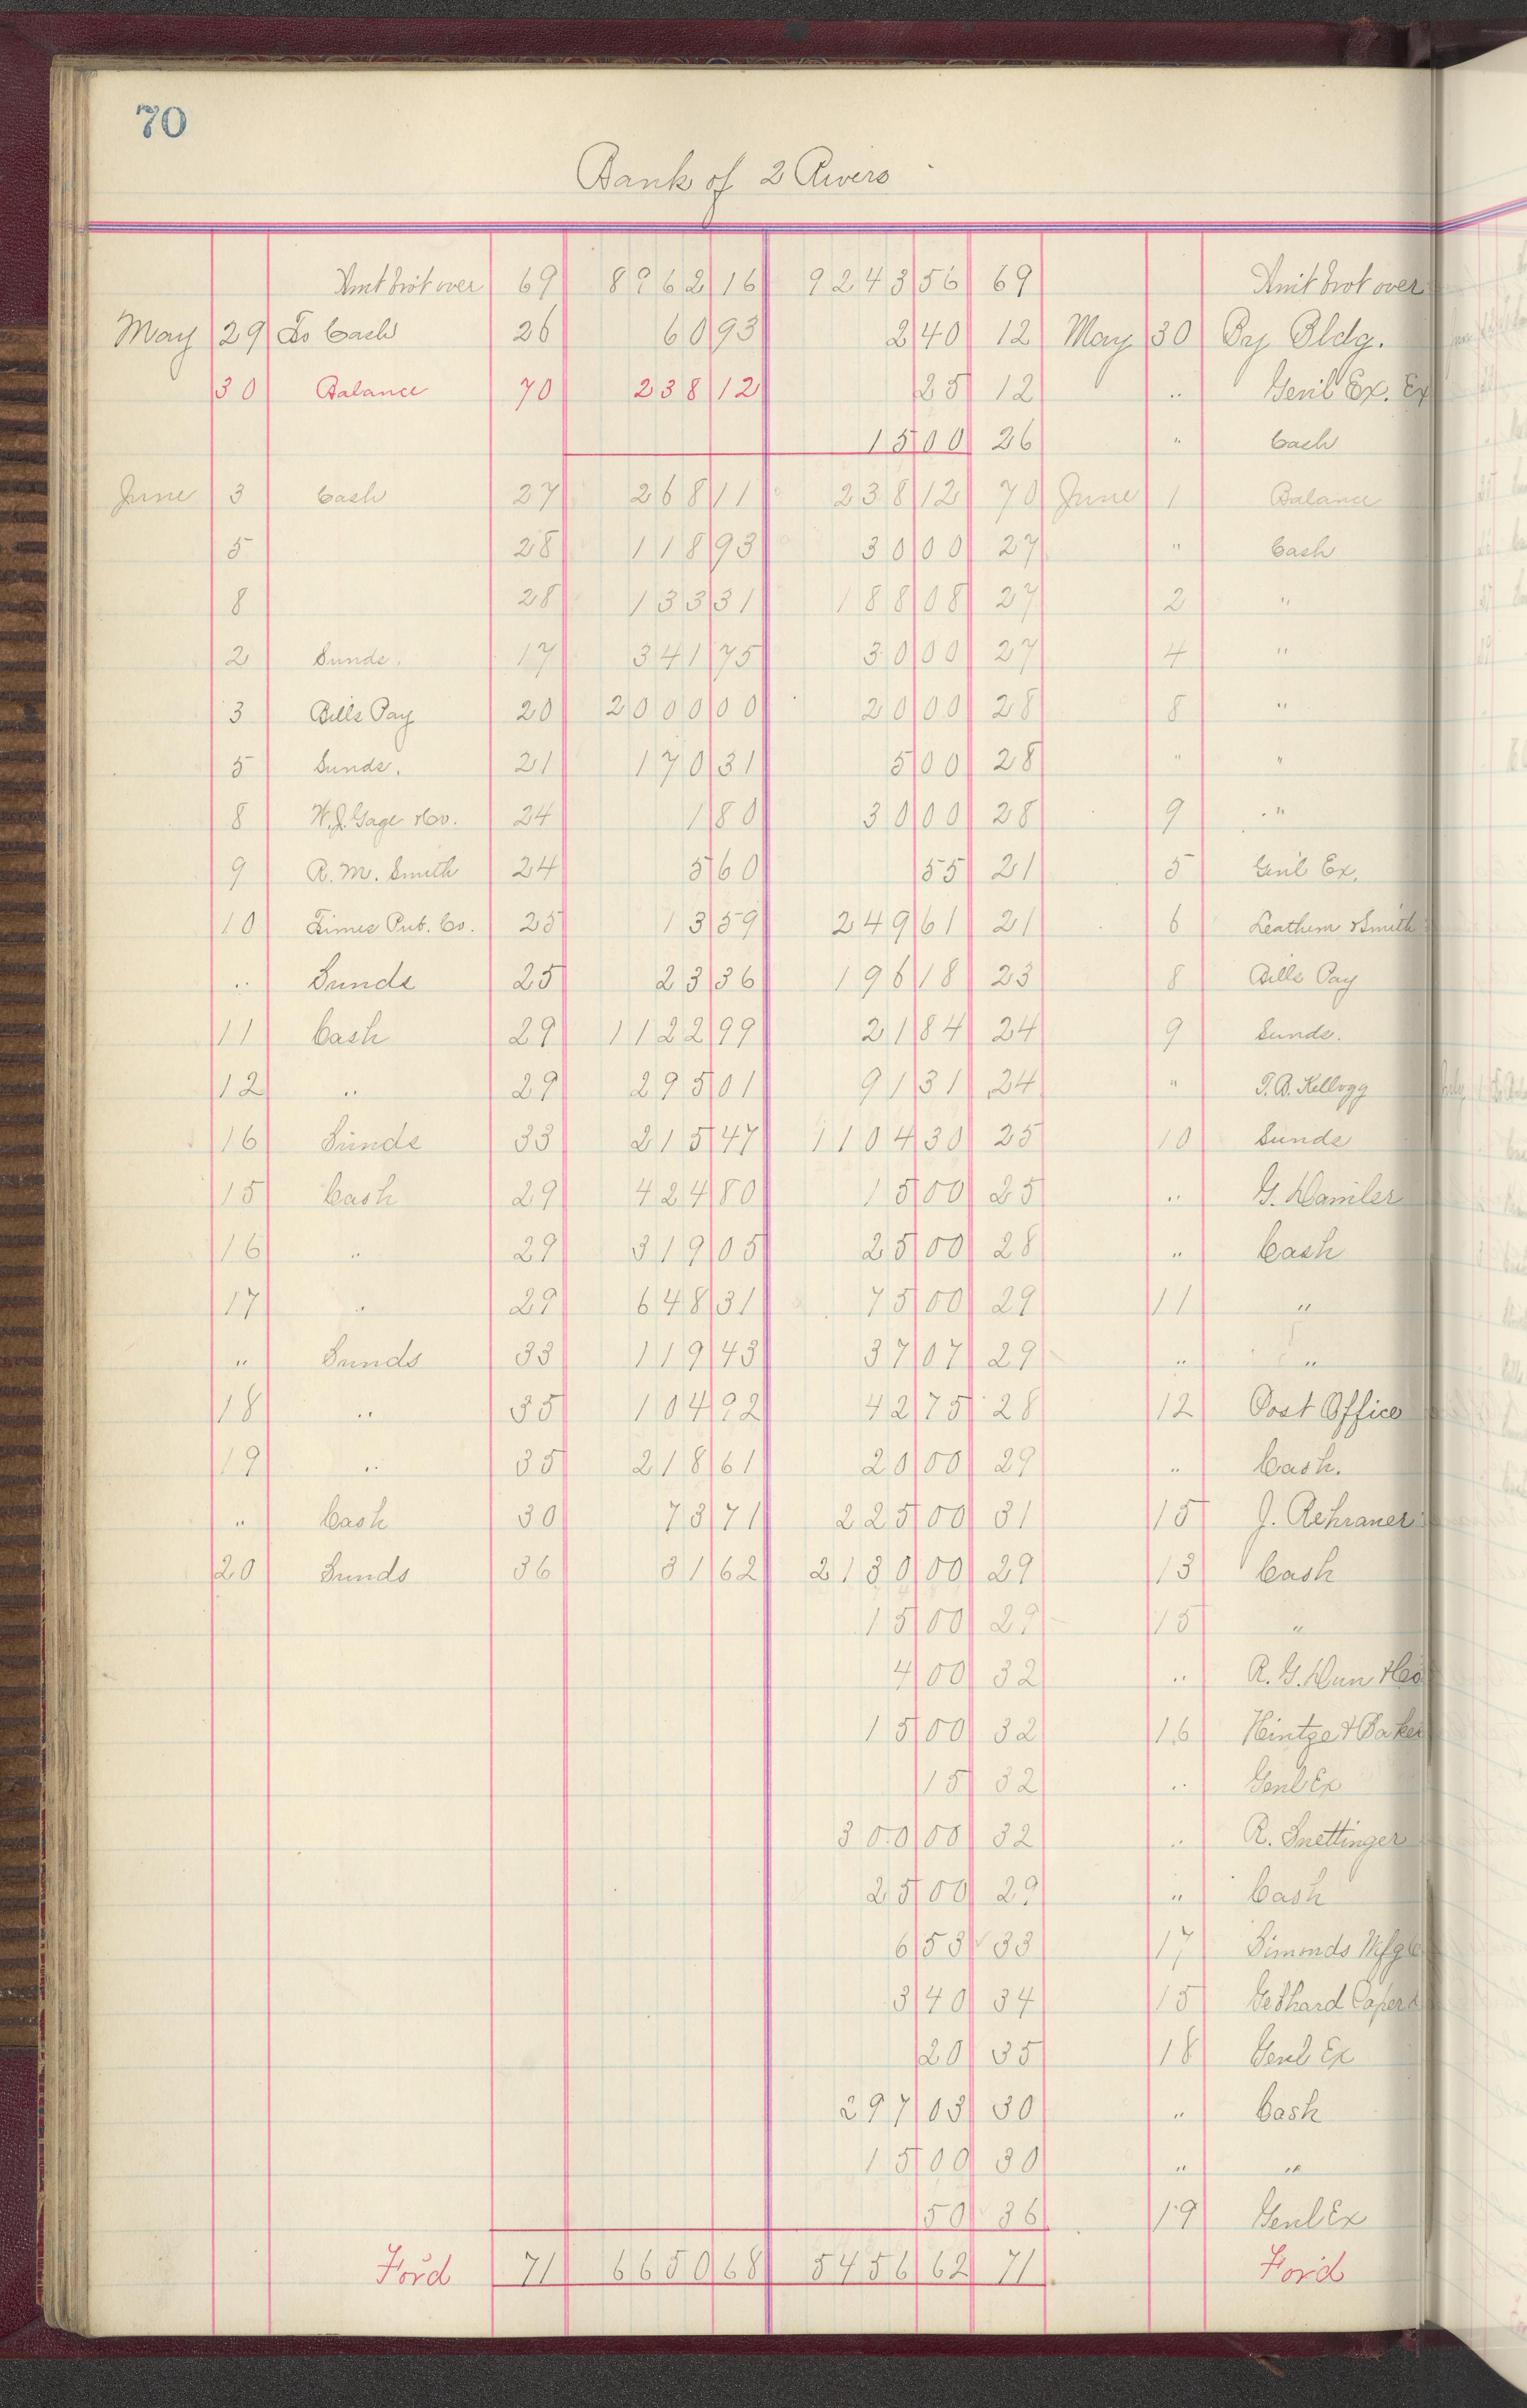 70
Bank of 2 Rivers
Amt brot over 69 8962 16 9243 56 69 Amt brot over
May 29 To Cash 26 60 93 2 40 12 May 30 By Bldg.
30 Balance 70 238 12 25 12 " Gen'l Ex. Ex
15 00 26 " Cash
June 3 Cash 27 268 11 238 12 70 June 1 Balance
5 28 118 93 30 00 27 " Cash
8 28 133 31 188 08 27 2 "
2 Sunds. 17 341 75 30 00 27 4 "
3 Bills Pay 20 2000 00 20 00 28 8 "
5 Sunds. 21 170 31 5 00 28 " "
8 W.J. Gage & Co. 24 1 80 30 00 28 9 "
9 R. M. Smith 24 5 60 55 21 5 Gen'l Ex.
10 Times Pub. Co. 25 13 59 249 61 21 6 Leathem & Smith
" Sunds 25 23 36 196 18 23 8 Bills Pay
11 Cash 29 1122 99 21 84 24 9 Sunds.
12 " 29 295 01 91 31 24 " P. B. Kellogg
16 Sunds 33 215 47 1104 30 25 10 Sunds
15 Cash 29 424 80 15 00 25 " G. Hamiler
16 " 29 319 05 25 00 28 " Cash
17 " 29 648 31 75 00 29 11 "
" Sunds 33 119 43 37 07 29 " "
18 " 35 104 92 42 75 28 12 Post Office
19 " 35 218 61 20 00 29 " Cash.
" Cash 30 73 71 225 00 31 15 J. Rehraner
20 Sunds 36 31 62 2130 00 29 13 Cash
15 00 29 15 "
4 00 32 " R. G. Dun & Co
15 00 32 16 Heintze & Baker
15 32 " Genl Ex
300 00 32 " R. Snettinger
25 00 29 " Cash
6 53 33 17 Simonds Mfg C
3 40 34 15 Gebhard Paper
20 35 18 Genl Ex
297 03 30 " Cash
15 00 30 " "
50 36 19 Genl Ex
For'd 71 6650 68 5456 62 71 For'd